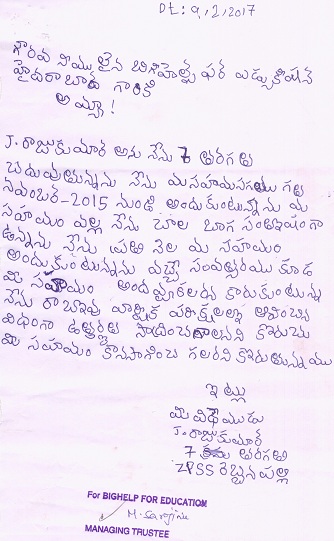 Dt: 9/2/2017
గౌరవ నీయు లైన బిగ్‌హెల్ప్ ఫర్ ఎడ్యుకేషన్
హైదరాబాద్ గారికి
అమ్మా !
J. రాజుకుమార్ అను నేను 7 తరగతి
చదువుతున్నను నేను మీ సహాయం గత
నవంబర్-2015 నుండి అందుకుంటున్నాను మీ
సహాయం వల్ల నేను చాల బాగ సంతోషంగా
ఉన్నను నేను ప్రతి నెల మీ సహాయం
అందుకుంటున్నను వచ్చే సంవత్సరము కూడ
మీ సహాయం కోరుకుంటున్న
నేను రాబోవు వార్షిక పరీక్షలలో
విధంగా ఉత్తీర్ణత సాధించగలనని కోరుచు
మీ సహాయం కొనసాగించ గలరని కోరుతున్నము
ఇట్లు
మీ విధేయుడు
J. రాజుకుమార్
7 వ తరగతి
ZPSS రెబ్బనపల్లి
For BIGHELP FOR EDUCATION
M. Sarojini
MANAGING TRUSTEE